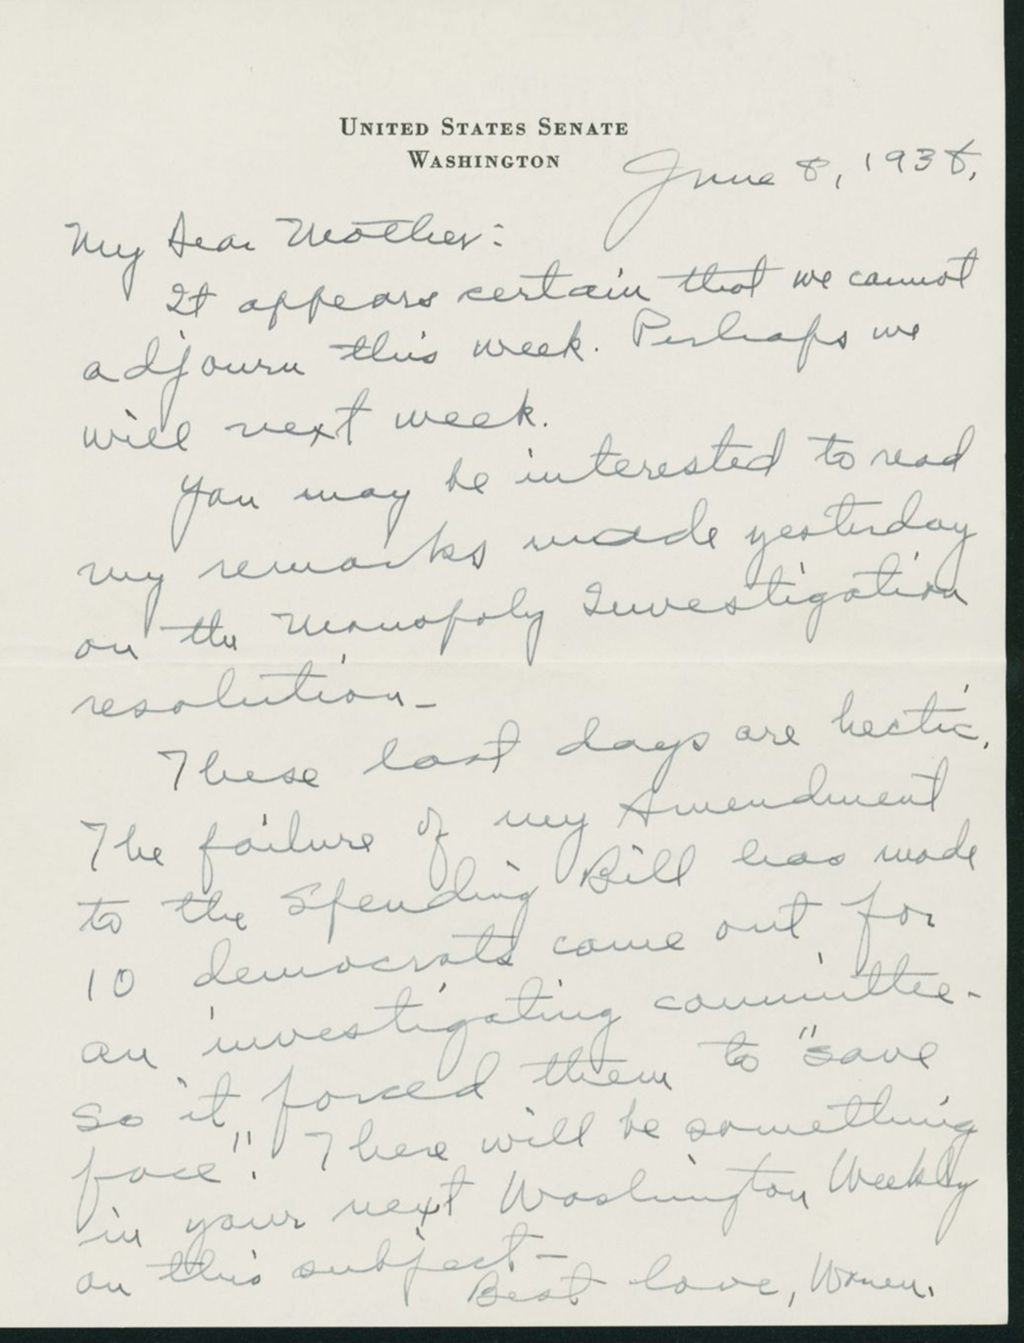 UNITED STATES SENATE
WASHINGTON
June 8, 1938.
My Dear Mother:
It appears certain that we cannot
adjourn this week. Perhaps we
will next week.
You may be interested to read
my remarks made yesterday
on the Monopoly Investigation
resolution—
These last days are hectic.
The failure of my Amendment
to the Spending Bill has made
10 democrats come out for
an investigating committee—
so it forced them to "save
face". There will be something
in your next Washington Weekly
on this subject—
Best love, Warren.